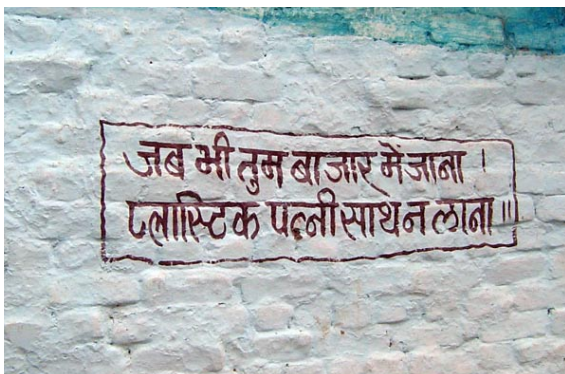 जब भी तुम बाजार में जाना ।
प्लास्टिक पन्नी साथ न लाना ॥